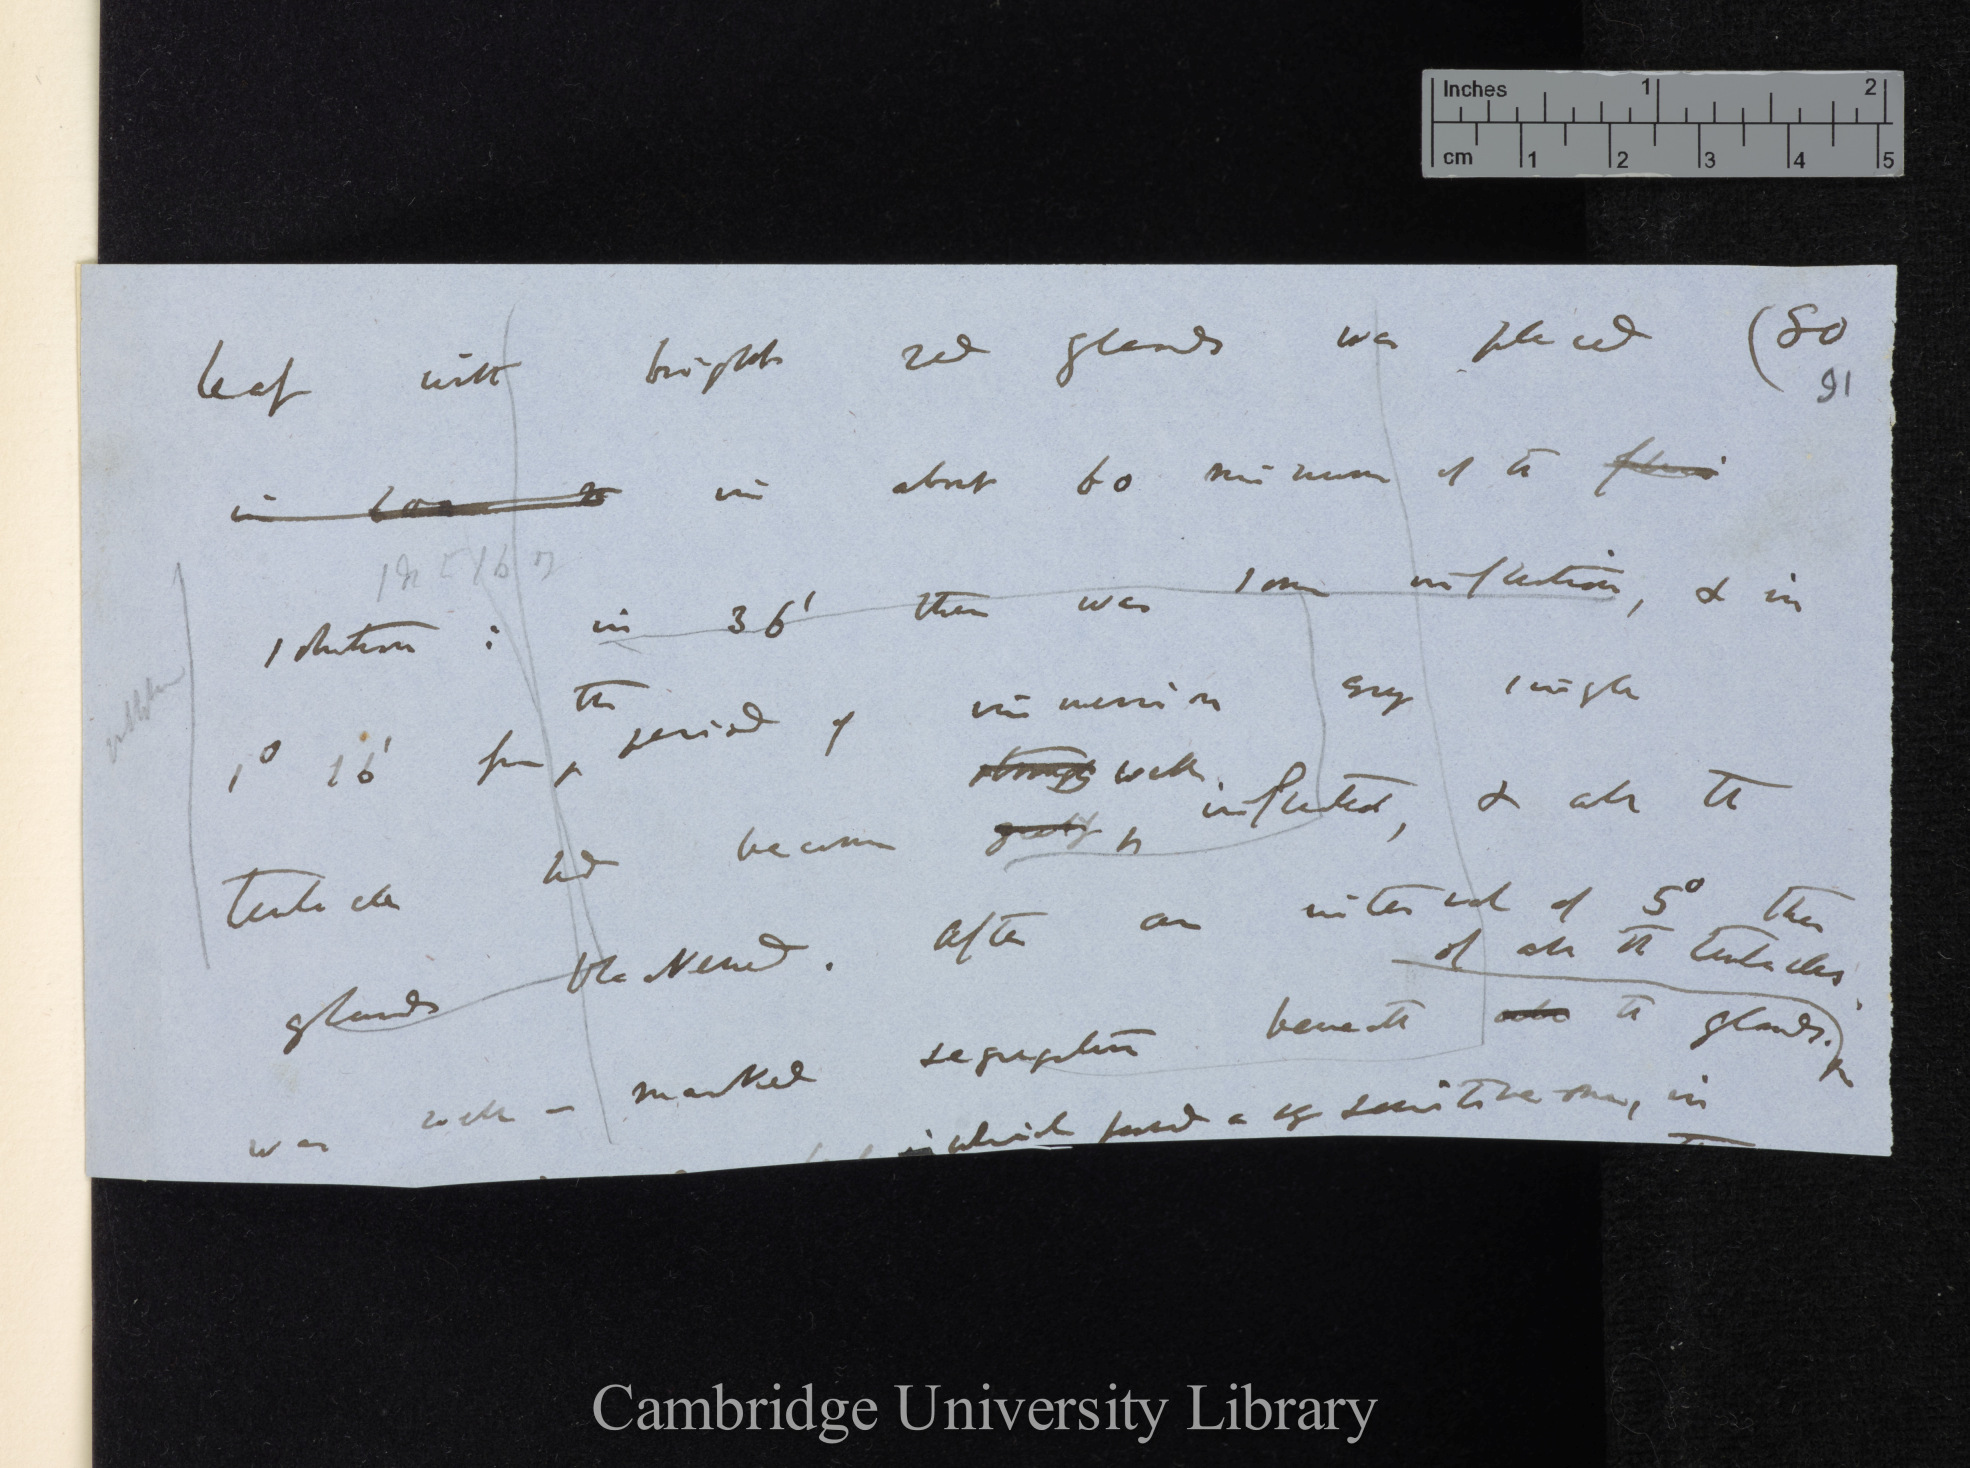 Inches 1 2
cm 1 2 3 4 5
leaf with bright red glands was placed (80
91
in about 60 minims of the
solution: in 36' there was some inflection, & in
1° 16' from the period of immersion every single
strongly well
tentacle had become greatly inflected, & all the
glands blackened. After an interval of 5° there
of all the tentacles
was well-marked segregation beneath all the glands.
in which proved a very sensitive one, in
Cambridge University Library